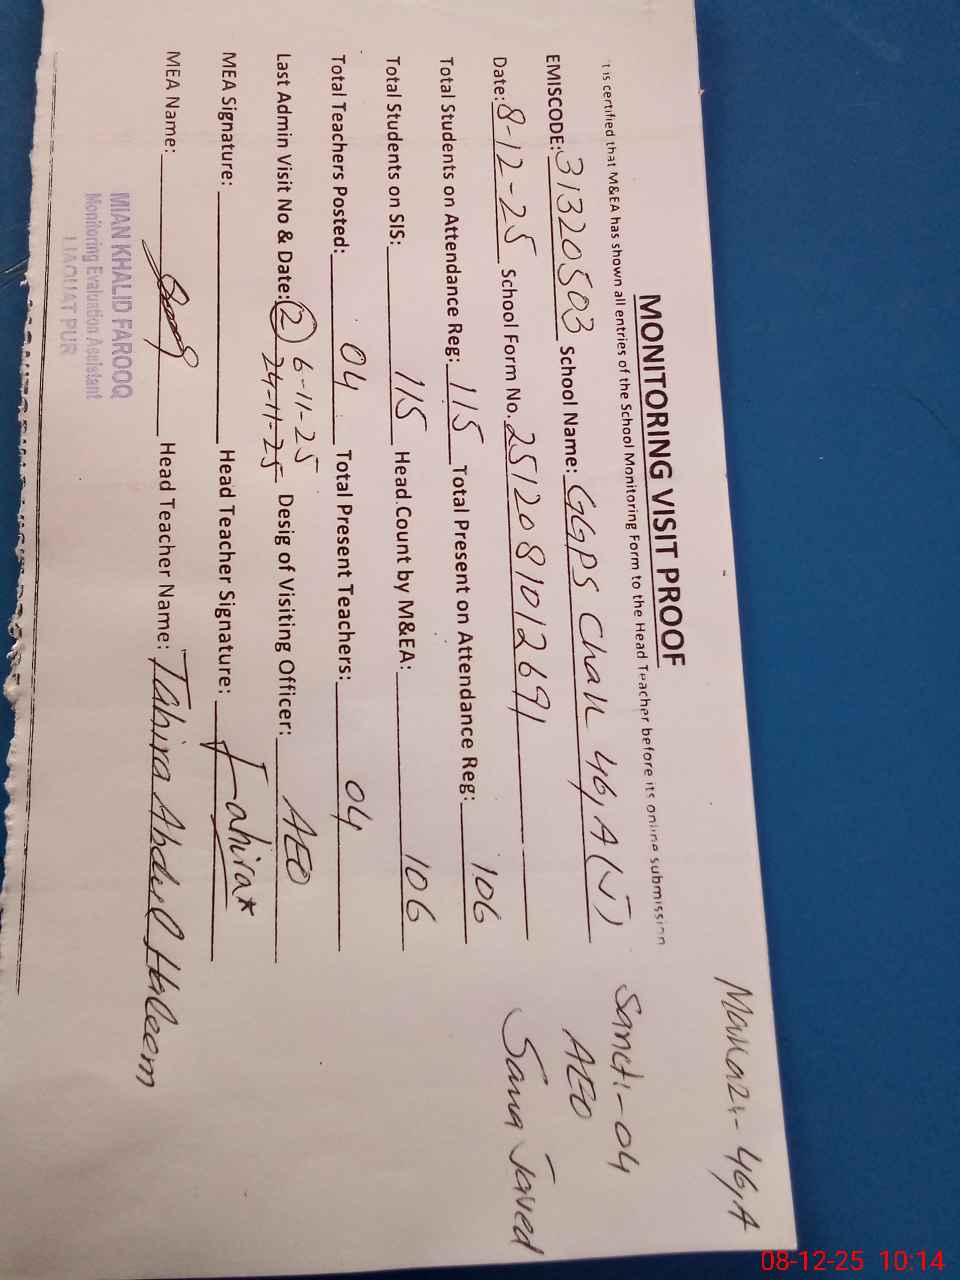 Markaz:- 46, A
MONITORING VISIT PROOF
t is certified that M&EA has shown all entries of the School Monitoring Form to the Head Teacher before its online submission
EMISCODE: 31320503 School Name: GGPS Chak 46, A (J) Sanct:- 04
Date: 8-12-25 School Form No. 2512081012691 AEO
Total Students on Attendance Reg: 115 Total Present on Attendance Reg: 106 Sana Javed
Total Students on SIS: 115 Head Count by M&EA: 106
Total Teachers Posted: 04 Total Present Teachers: 04
Last Admin Visit No & Date: 2 6-11-25 24-11-25 Desig of Visiting Officer: AEO
MEA Signature: Head Teacher Signature: Tahira*
MEA Name: Head Teacher Name: Tahira Abdul Haleem
MIAN KHALID FAROOQ
Monitoring Evaluation Assistant
LIAQUAT PUR
08-12-25 10:14